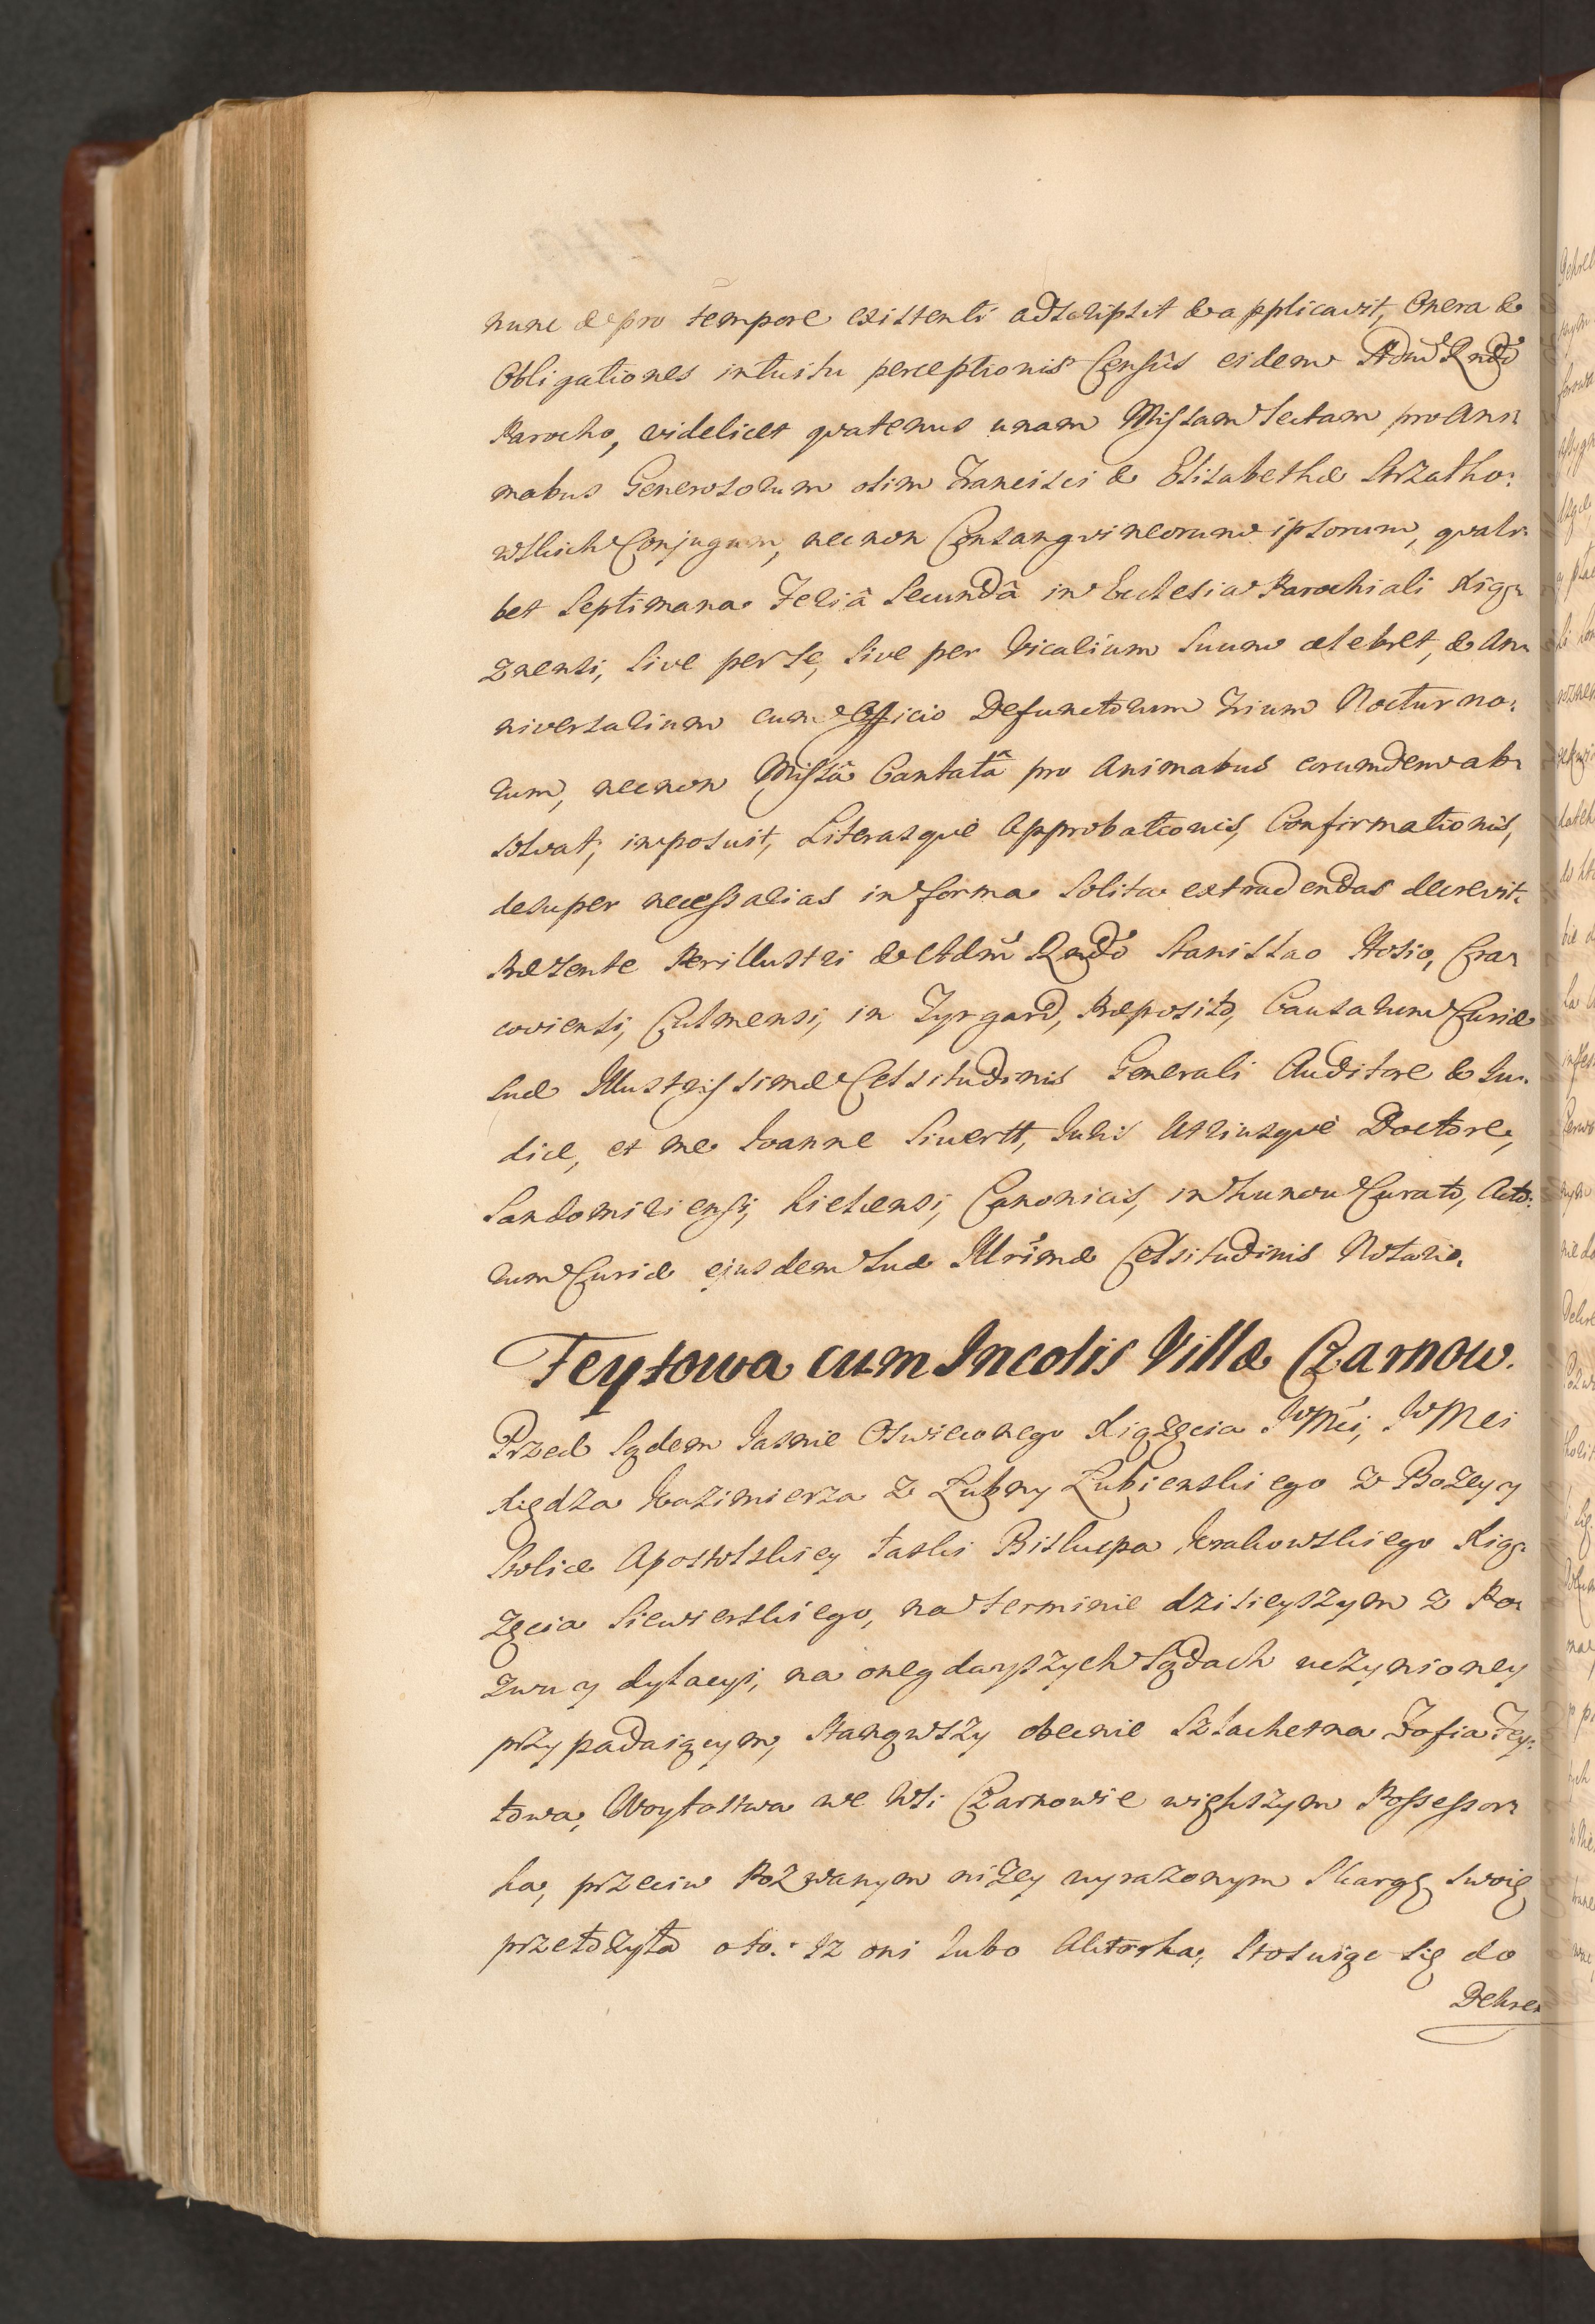 nunc & pro tempore existenti adscripsit & applicavit, Onera &
Obligationes intuitu perceptionis Censûs eidem Admd Rndo
Parocho, videlicet qvatenus unam Missam lectam pro Ani:
mabus Generosorum olim Francisci & Elisabethæ Strzałko:
wskich Conjugum, necnon Consangvineorum ipsorum, qvali:
bet Septimana Feriâ Secundâ in Ecclesia Parochiali Xiąz:
znensi, sive per se, sive per Vicarium Suum celebret, & An:
niversarium cum Officio Defunctorum trium Nocturno:
rum, necnon Missâ Cantatâ pro Animabus eorumdem ab:
solvat, imposuit, Literasqve Approbationis, Confirmationis,
desuper necessarias in forma Solita extradendas decrevit.
Præsente Perillustri & Adm Rndo Stanislao Hosio, Cra:
coviensi, Culmensi, in Zyrgard, Præposito, Causarum Curiæ
Suæ Illustrissimæ Celsitudinis Generali Auditore & Ju:
dice, et me Joanne Siwertt, Juris Utriusqve Doctore,
Sandomiriensi, Kielcensi, Canonicis, in Curato, Acto:
rum Curiæ ejusdem Suæ Illrimæ Celsitudinis Notario.
Feytowa cum Incolis Villæ Czarnow.
Przed Sądem Jasnie Oswieconego Xiązęcia JWMci, JWMci
Xiędza Kazimierza z Łubny Łubienskiego z Bozey y
Stolice Apostolskiey łaski Biskupa Krakowskiego Xią:
zęcia Siewierskiego, na terminie dzisieyszym z Po:
zwu y dylacyi, na onegdayszych Sądach uczynioney
przypadaiącym, Stanąwszy obecnie Szlachetna Zofia Fey:
towa, Woytostwa we Wsi Czarnowie większym Possessor:
ka, przeciw Pozwanym nizey wyrazonym Skargę swoię
przełozyła oto: Iz oni lubo Aktorka, stosuiąc się do
Dekre: